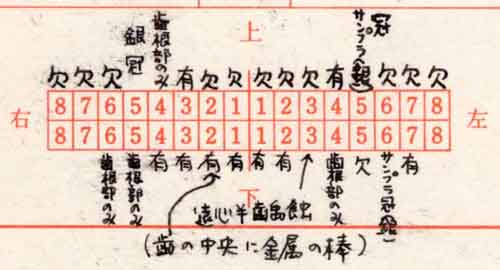 上
欠 欠 欠 銀冠 歯根部のみ 有 欠 欠 欠 欠 欠 有 サンプラ冠(銀) 欠 欠 欠
右 8 7 6 5 4 3 2 1 1 2 3 4 5 6 7 8 左
8 7 6 5 4 3 2 1 1 2 3 4 5 6 7 8
歯根部のみ 歯根部のみ 有 有 有 有 有 有 歯根部のみ 欠 サンプラ冠(銀) 有
下
遠心半齲蝕
(歯の中央に金属の棒)